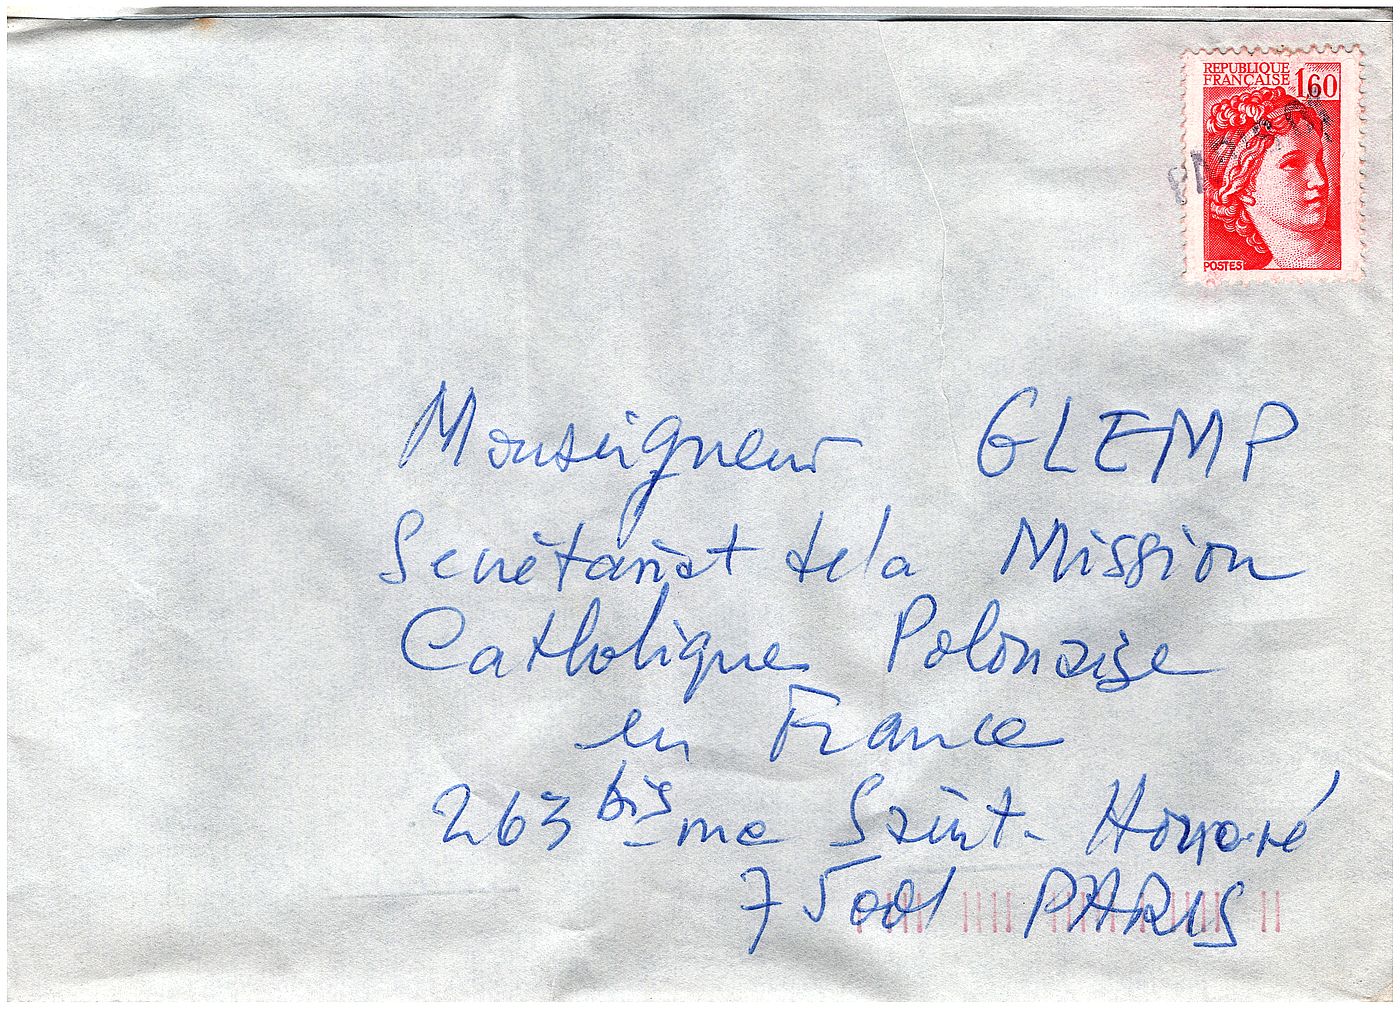 REPUBLIQUE
FRANÇAISE
1,60
POSTES
Monseigneur GLEMP
Secrétariat de la Mission
Catholique Polonaise
en France
263 bis rue Saint-Honoré
75001 PARIS